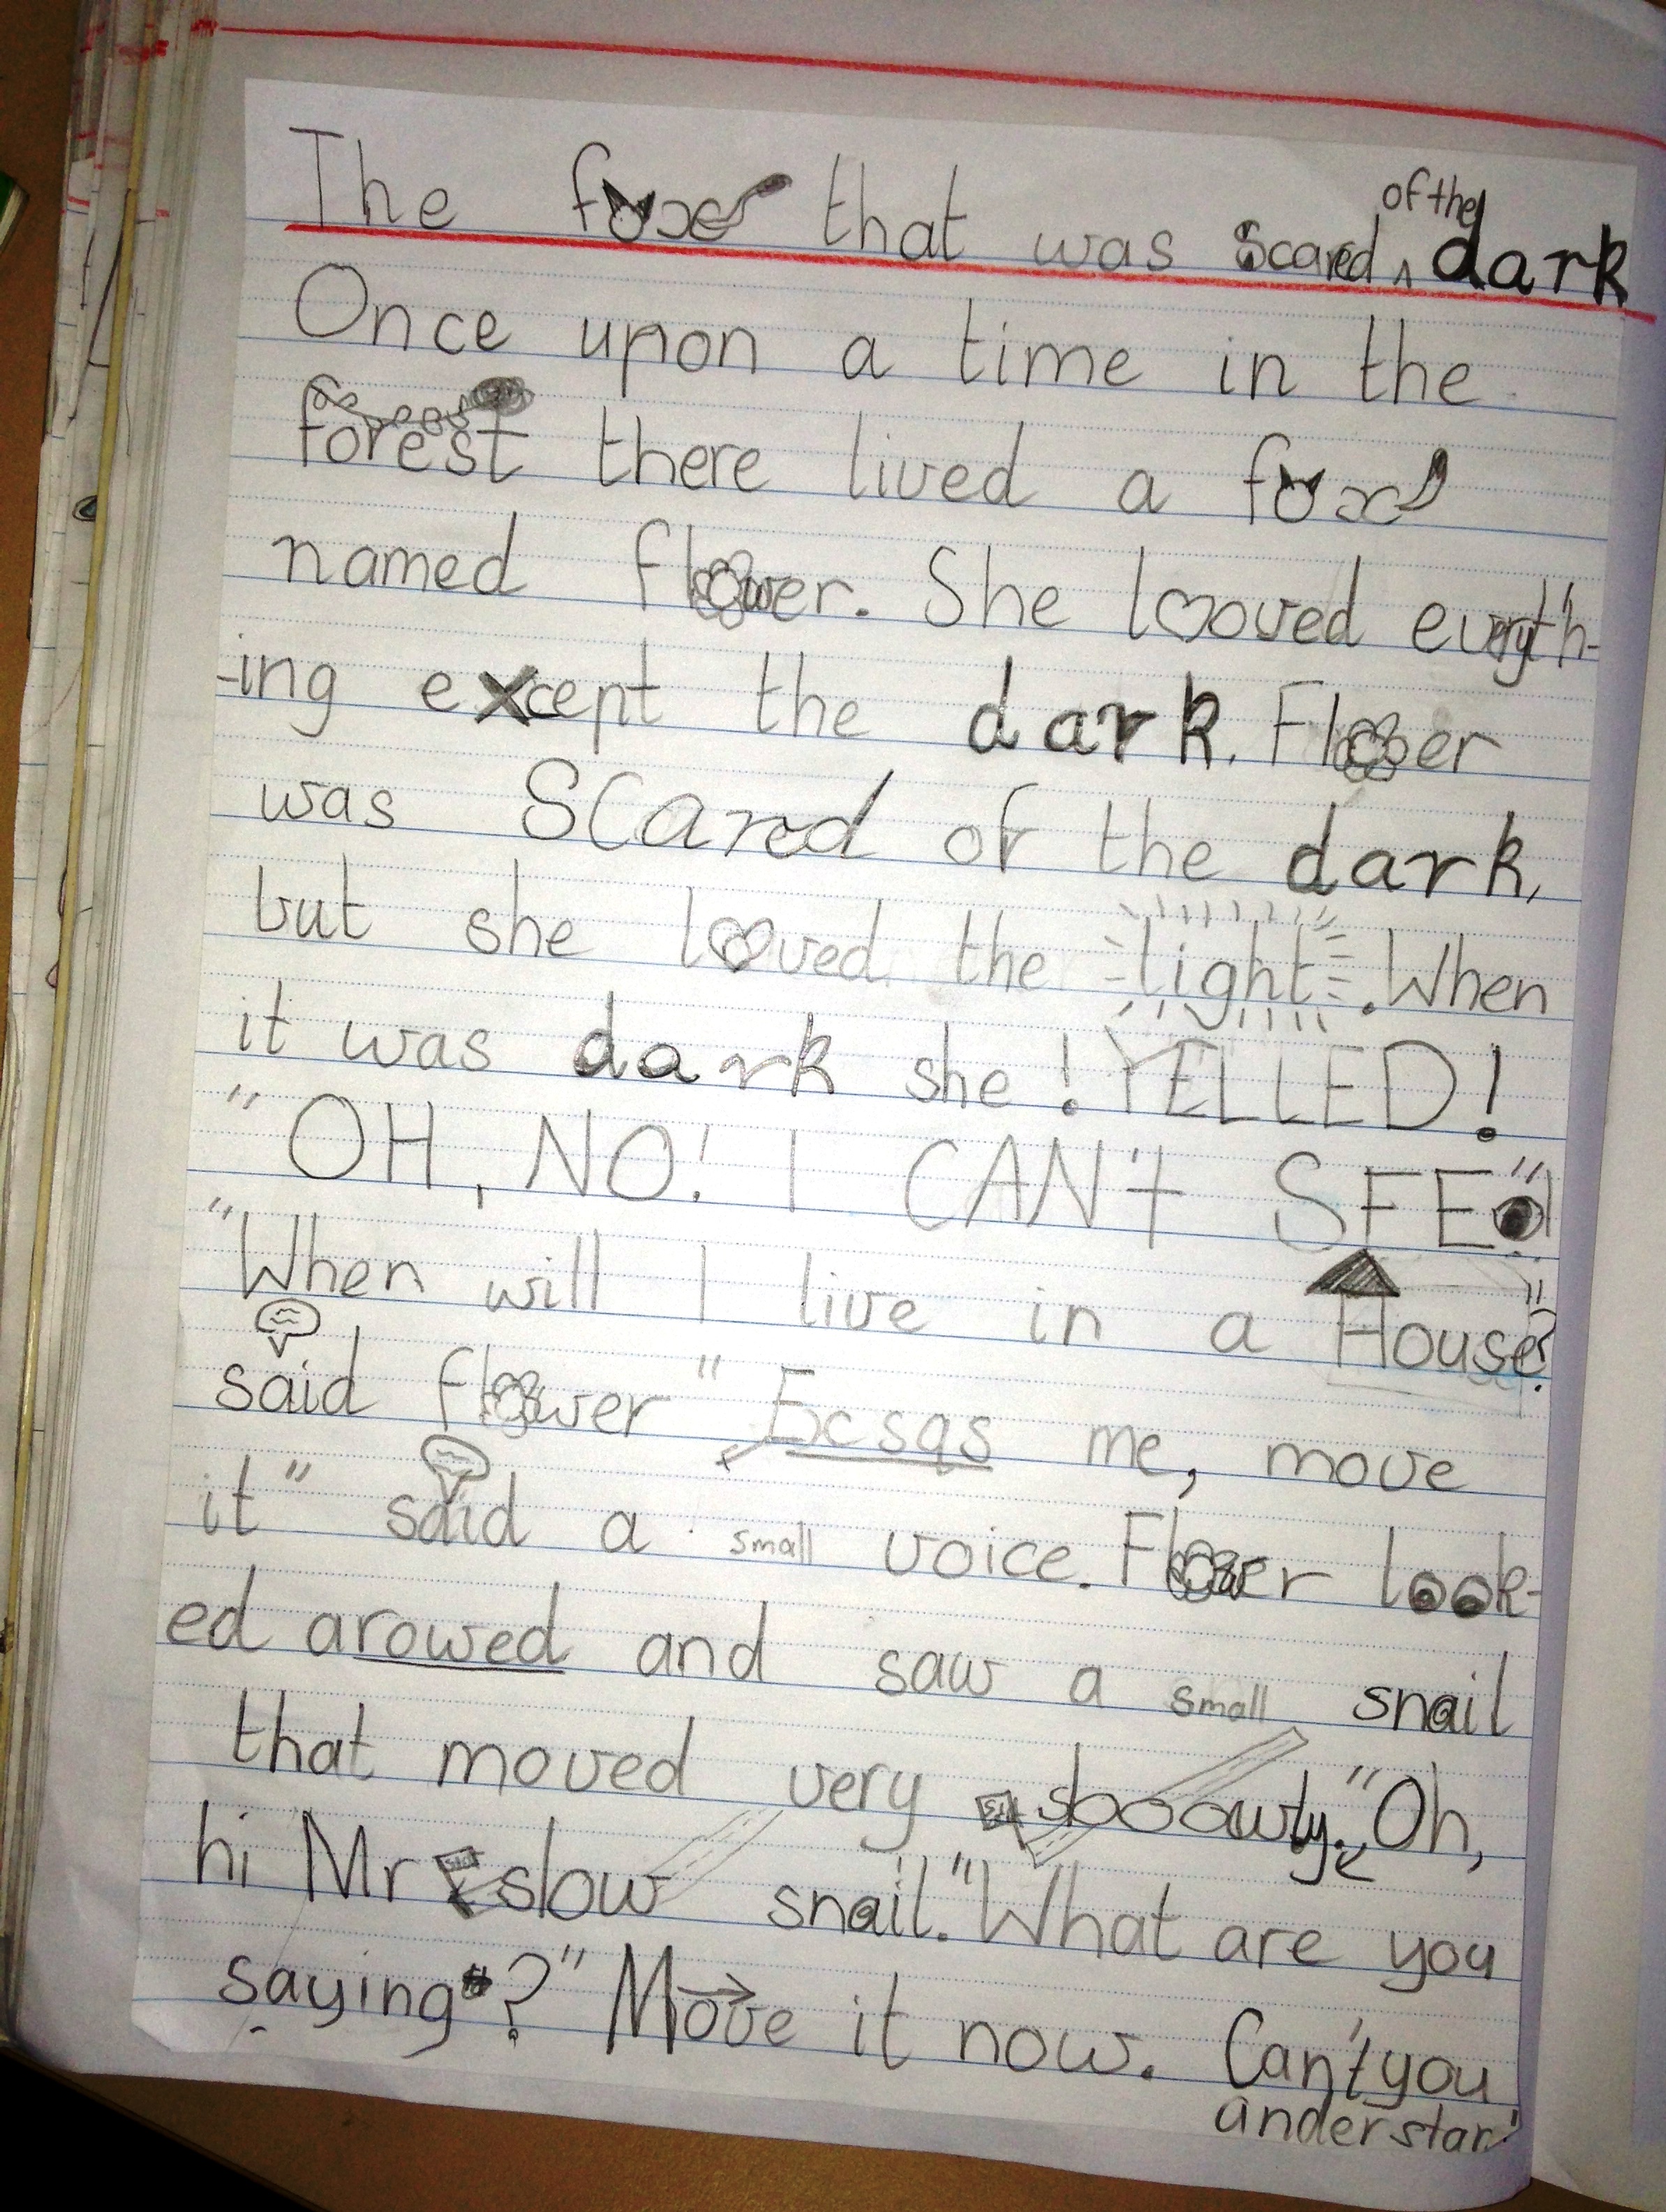 The fox that was scared of the dark
Once upon a time in the
forest there lived a fox
named flower. She looved everyth-
-ing except the dark. Flower
was Scared of the dark,
but she loved the light. When
it was dark she ! YELLED!
"OH, NO! I CAN't SEE"!
"When will I live in a House?"
said flower "Ecsqs me, move
it" said a small voice. Flower look-
ed arowed and saw a small snail
that moved very slooowly. "Oh,
hi Mr slow snail." "What are you
saying?" Move it now. Can't you
understan